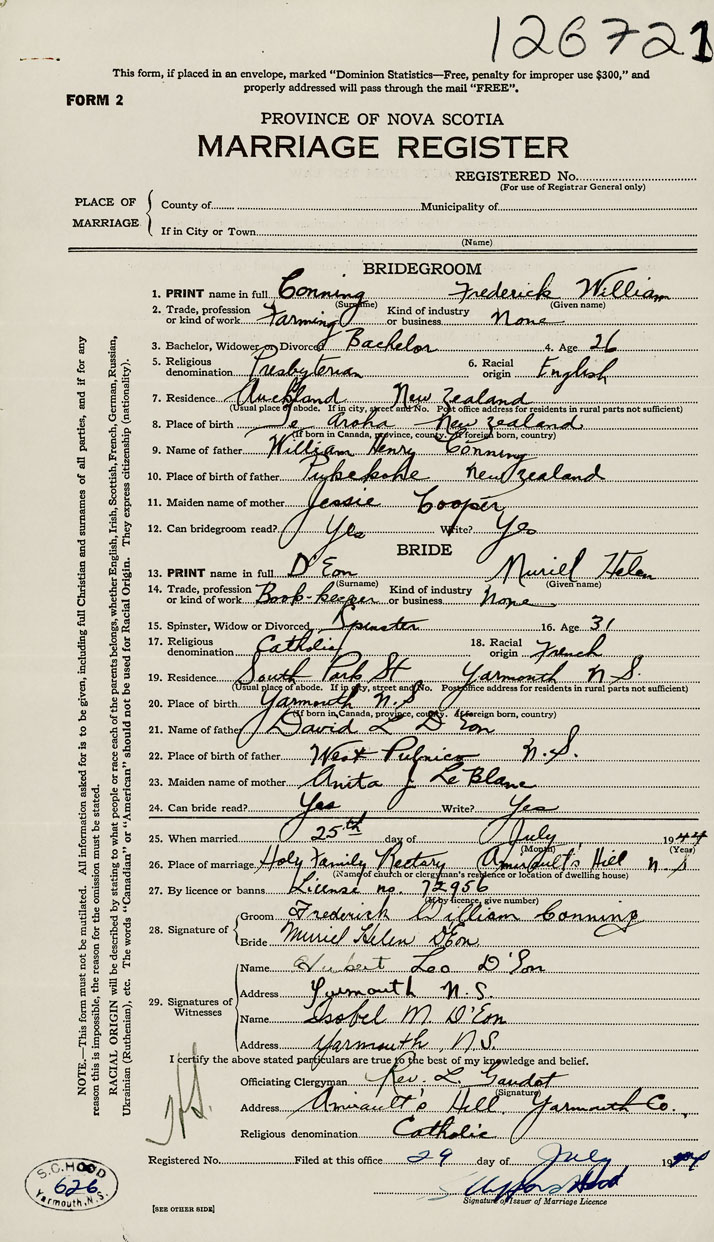 126721
This form, if placed in an envelope, marked "Dominion Statistics—Free, penalty for improper use $300," and
properly addressed will pass through the mail "FREE".
FORM 2
PROVINCE OF NOVA SCOTIA
MARRIAGE REGISTER
REGISTERED No.
(For use of Registrar General only)
PLACE OF MARRIAGE
County of Municipality of
If in City or Town
(Name)
BRIDEGROOM
1. PRINT name in full Conning Frederick William
(Surname) (Given name)
2. Trade, profession or kind of work Farming Kind of industry or business None
3. Bachelor, Widower or Divorced Bachelor 4. Age 26
5. Religious denomination Presbyterian 6. Racial origin English
7. Residence Auckland New Zealand
(Usual place of abode. If in city, street and No. Post office address for residents in rural parts not sufficient)
8. Place of birth Te Aroha New Zealand
(If born in Canada, province, county. If foreign born, country)
9. Name of father William Henry Conning
10. Place of birth of father Pukekohe New Zealand
11. Maiden name of mother Jessie Cooper
12. Can bridegroom read? Yes Write? Yes
BRIDE
13. PRINT name in full D'Eon Muriel Helen
(Surname) (Given name)
14. Trade, profession or kind of work Book-keeper Kind of industry or business None
15. Spinster, Widow or Divorced Spinster 16. Age 31
17. Religious denomination Catholic 18. Racial origin French
19. Residence South Park St Yarmouth N.S.
(Usual place of abode. If in city, street and No. Post office address for residents in rural parts not sufficient)
20. Place of birth Yarmouth N.S
(If born in Canada, province, county. If foreign born, country)
21. Name of father David L D'Eon
22. Place of birth of father West Pubnico N.S.
23. Maiden name of mother Anita J. LeBlanc
24. Can bride read? Yes Write? Yes
25. When married 25th day of July 1944
(Month) (Year)
26. Place of marriage Holy Family Rectory Amirault's Hill N.S
(Name of church or clergyman's residence or location of dwelling house)
27. By licence or banns License no. 72956
(If by licence, give number)
28. Signature of
Groom Frederick William Conning
Bride Muriel Helen D'Eon
29. Signatures of Witnesses
Name Hubert Leo D'Eon
Address Yarmouth N.S.
Name Isobel M D'Eon
Address Yarmouth, N.S.
I certify the above stated particulars are true to the best of my knowledge and belief.
Officiating Clergyman Rev. L. Gaudet
(Signature)
Address Amirault's Hill, Yarmouth Co.,
Religious denomination Catholic
Registered No. Filed at this office 29 day of July 1944
Signature of Issuer of Marriage Licence
[SEE OTHER SIDE]
S.C. HOOD
626
Yarmouth, N.S.
NOTE.—This form must not be mutilated. All information asked for is to be given, including full Christian and surnames of all parties, and if for any
reason this is impossible, the reason for the omission must be stated.
RACIAL ORIGIN will be described by stating to what people or race each of the parents belongs, whether English, Irish, Scottish, French, German, Russian,
Ukrainian (Ruthenian), etc. The words "Canadian" or "American" should not be used for Racial Origin. They express citizenship (nationality).